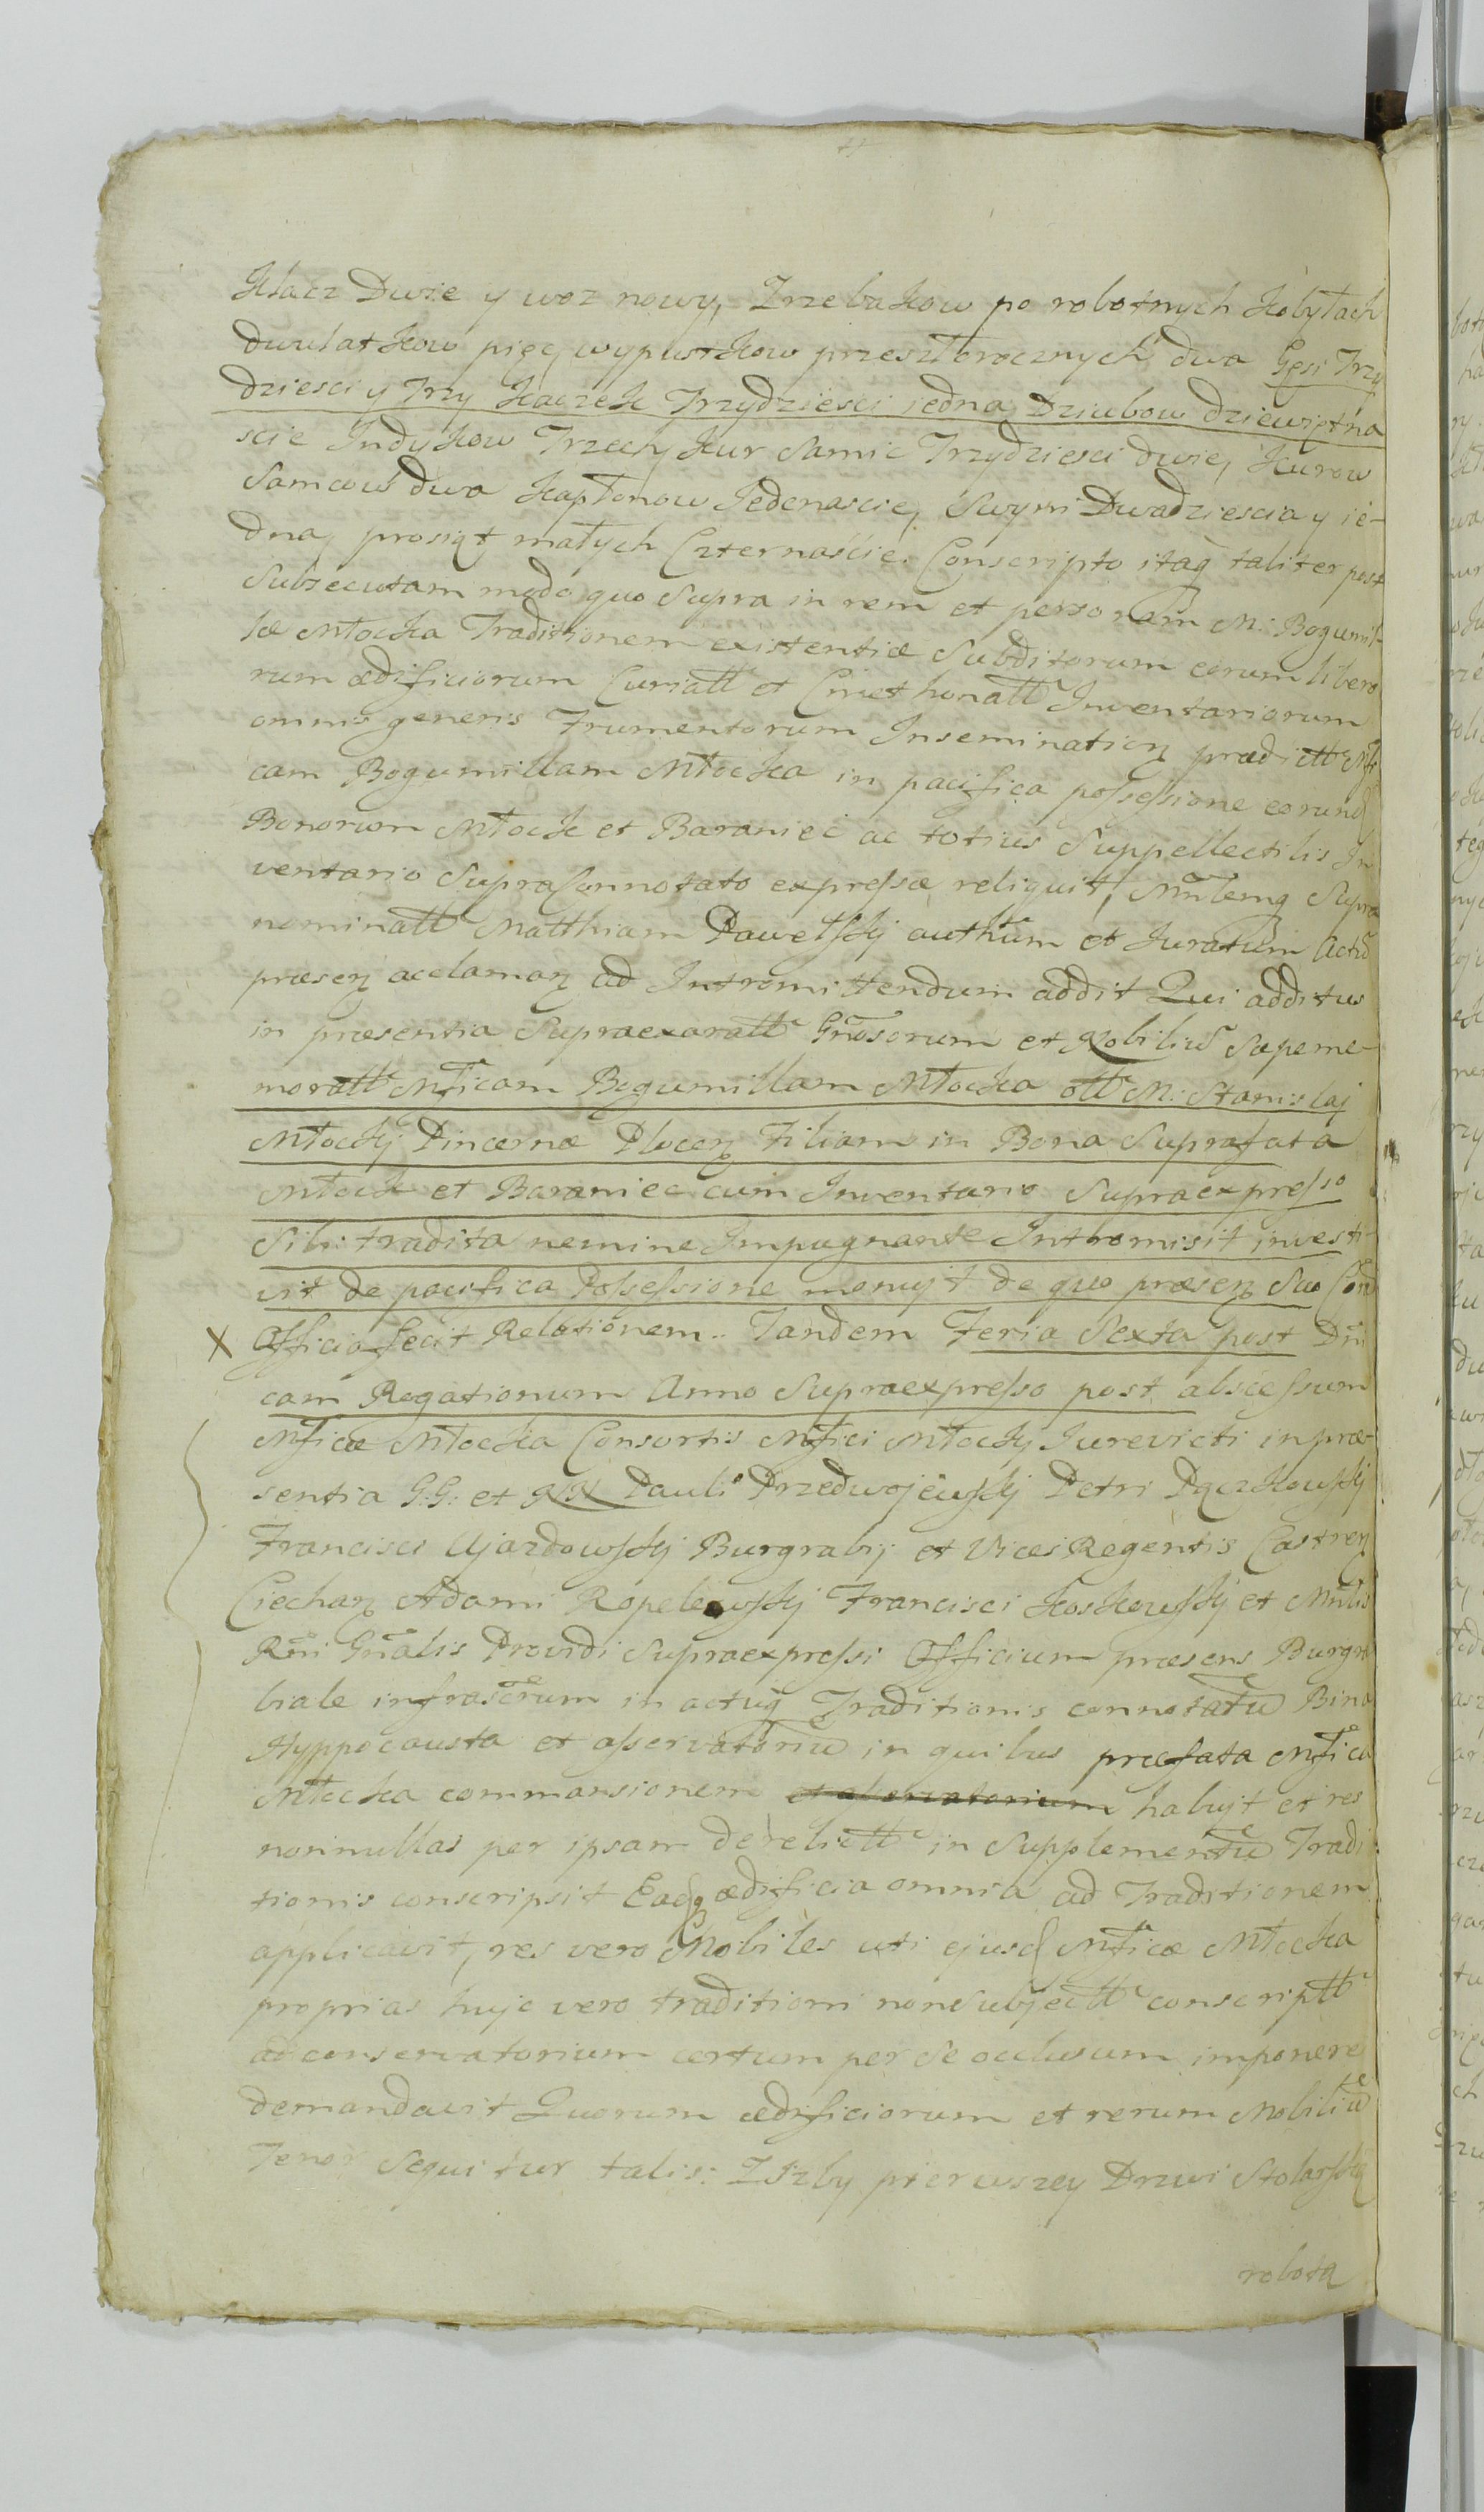 Klacz Dwie y woz nowy, Zrzebakow po robotnych Kobyłach
dwulatkow pięc, wypustkow przeszłorocznych dwa Gęsi Trzy
dziesci y Trzy Kaczek Trzydziesci iedna, Dziubow dziewiętna
scie Indykow Trzech, Kur Samic Trzydziesci dwie, Kurow
Samcow dwa Kapłonow Jedenascie, Swyni Dwadziescia y ie-
dna, prosiąt małych Czternaście. Conscripto itaq taliter post
Subsecutam modo quo Supra in rem et personam M: Bogumil-
læ Młocka Traditionem existentiæ Subditorum eorum libero
rum ædificiorum Curiall et Cmethonall Inventariorum
omnis generis Frumentorum Inseminationz prædictt Mfi
cam Bogumillam Młocka in pacifica possessione eorund
Bonorum Młock et Baraniec ac totius Suppellectilis In
ventario Supra Connotato expressæ reliquit, Mnlemq Supra
nominatt Matthiam Pawelskj authcum et Juratum Actu
præsenz acclamanz ad Intromittendum addit Qui additus
in præsentia Supraexaratt Gnosorum et Nobiliu Sæpeme-
moratt Mficam Bogumillam Młocka olt M: Stanislaj
Młockj Pincernæ Plocenz Filiam in Bona Suprafata
Młock et Baraniec cum Inventario Supraexpresso
Sibi tradita nemine Impugnante Intromisit investi-
vit de pacifica Possessione monujt de quo præsenz Suo Cora
X Officio fecit Relationem. Tandem Feria Sexta post Dni
cam Rogationum Anno Supraexpresso post abscessum
Mficæ Młocka Consortis Mfici Młockj Jurevicti in præ-
sentia G:G: et NN Pauli Przedwojewskj Petri Pączkowskj
Francisci Ujazdowskj Burgrabij et Vices Regentis Castrenz
Ciechanz Adami Ropelewskj Francisci Koskowskj et Mnlis
Rni Gnalis Providi Supraexpressi Officium præsens Burgra
biale infrascrum in actuq Traditionis connotatu Bina
Hyppocausta et asservatoriu in quibus præfata Mfica
Młocka commansionem et aservatorium habujt et res
nonnullas per ipsam derelictt in Supplementu Tradi
tionis conscripsit Eadq ædificia omnia ad Traditionem
applicavit, res vero Mobiles uti ejusd Mficæ Młocka
proprias hujc vero traditioni non Subjectt conscriptt
ad conservatorium certum per Se oclusum imponere
demandavit Quorum ædificiorum et rerum Mobiliu
Tenor Sequitur talis: Iszby pierwszey Drzwi Stolarską
robotą